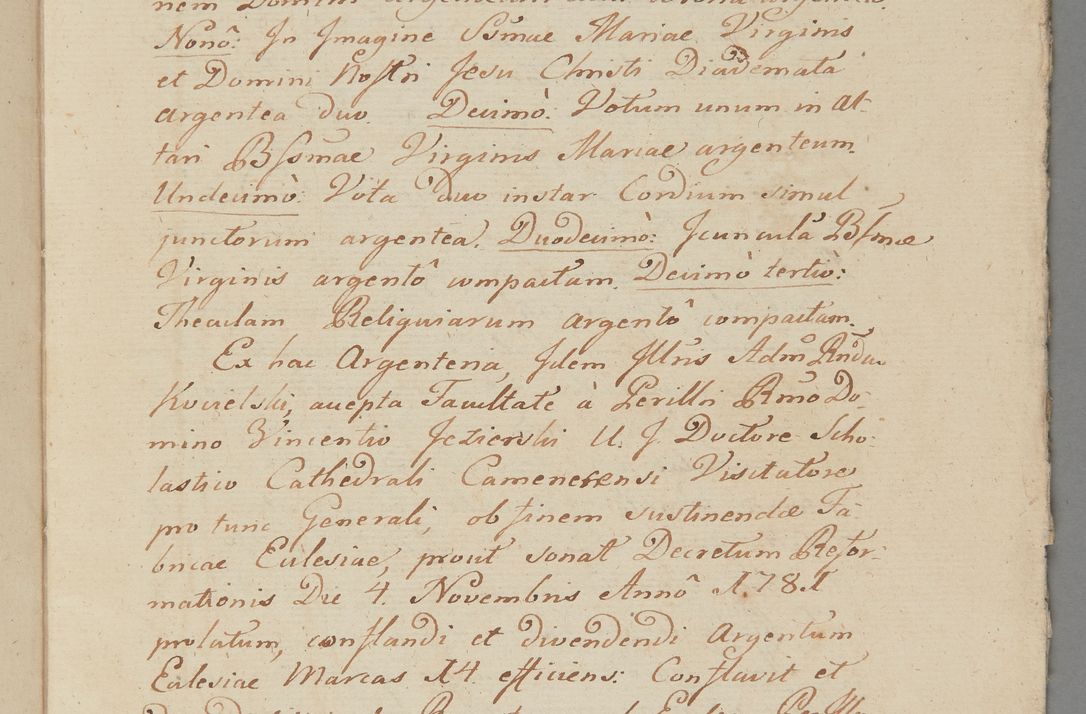 nem Domini
Nonô: In Imagine Ssmae Mariae Virginis
et Domini Nostri Jesu Christi Diademata
argentea duo. Decimò: Votum unum in al-
tari BSsmae Virginis Mariae argenteum.
Undecimò: Vota duo instar Cordium simul
junctorum argentea. Duodecimò: Icuncula BSmae
Virginis argentô compactam. Decimò tertiò:
Thecular Reliquiarum argentô compactam.
Ex hac Argenteria, Idem Illris Admô Rndus
Kocielski, accepta Facultate à Perilli Rmô Do-
mino Vincentio Jezierski U. J. Doctore Scho-
lastico Cathedrali Camenecensi Visitatore
pro tunc Generali, ob finem sustinendae Fa-
bricae Ecclesiae, prout sonat Decretum Refor-
mationis Die 4. Novembris Annô 1781
prolatum, conflandi et divendendi Argentum
Eclesiae Marcas 14 efficiens: Conflavit et